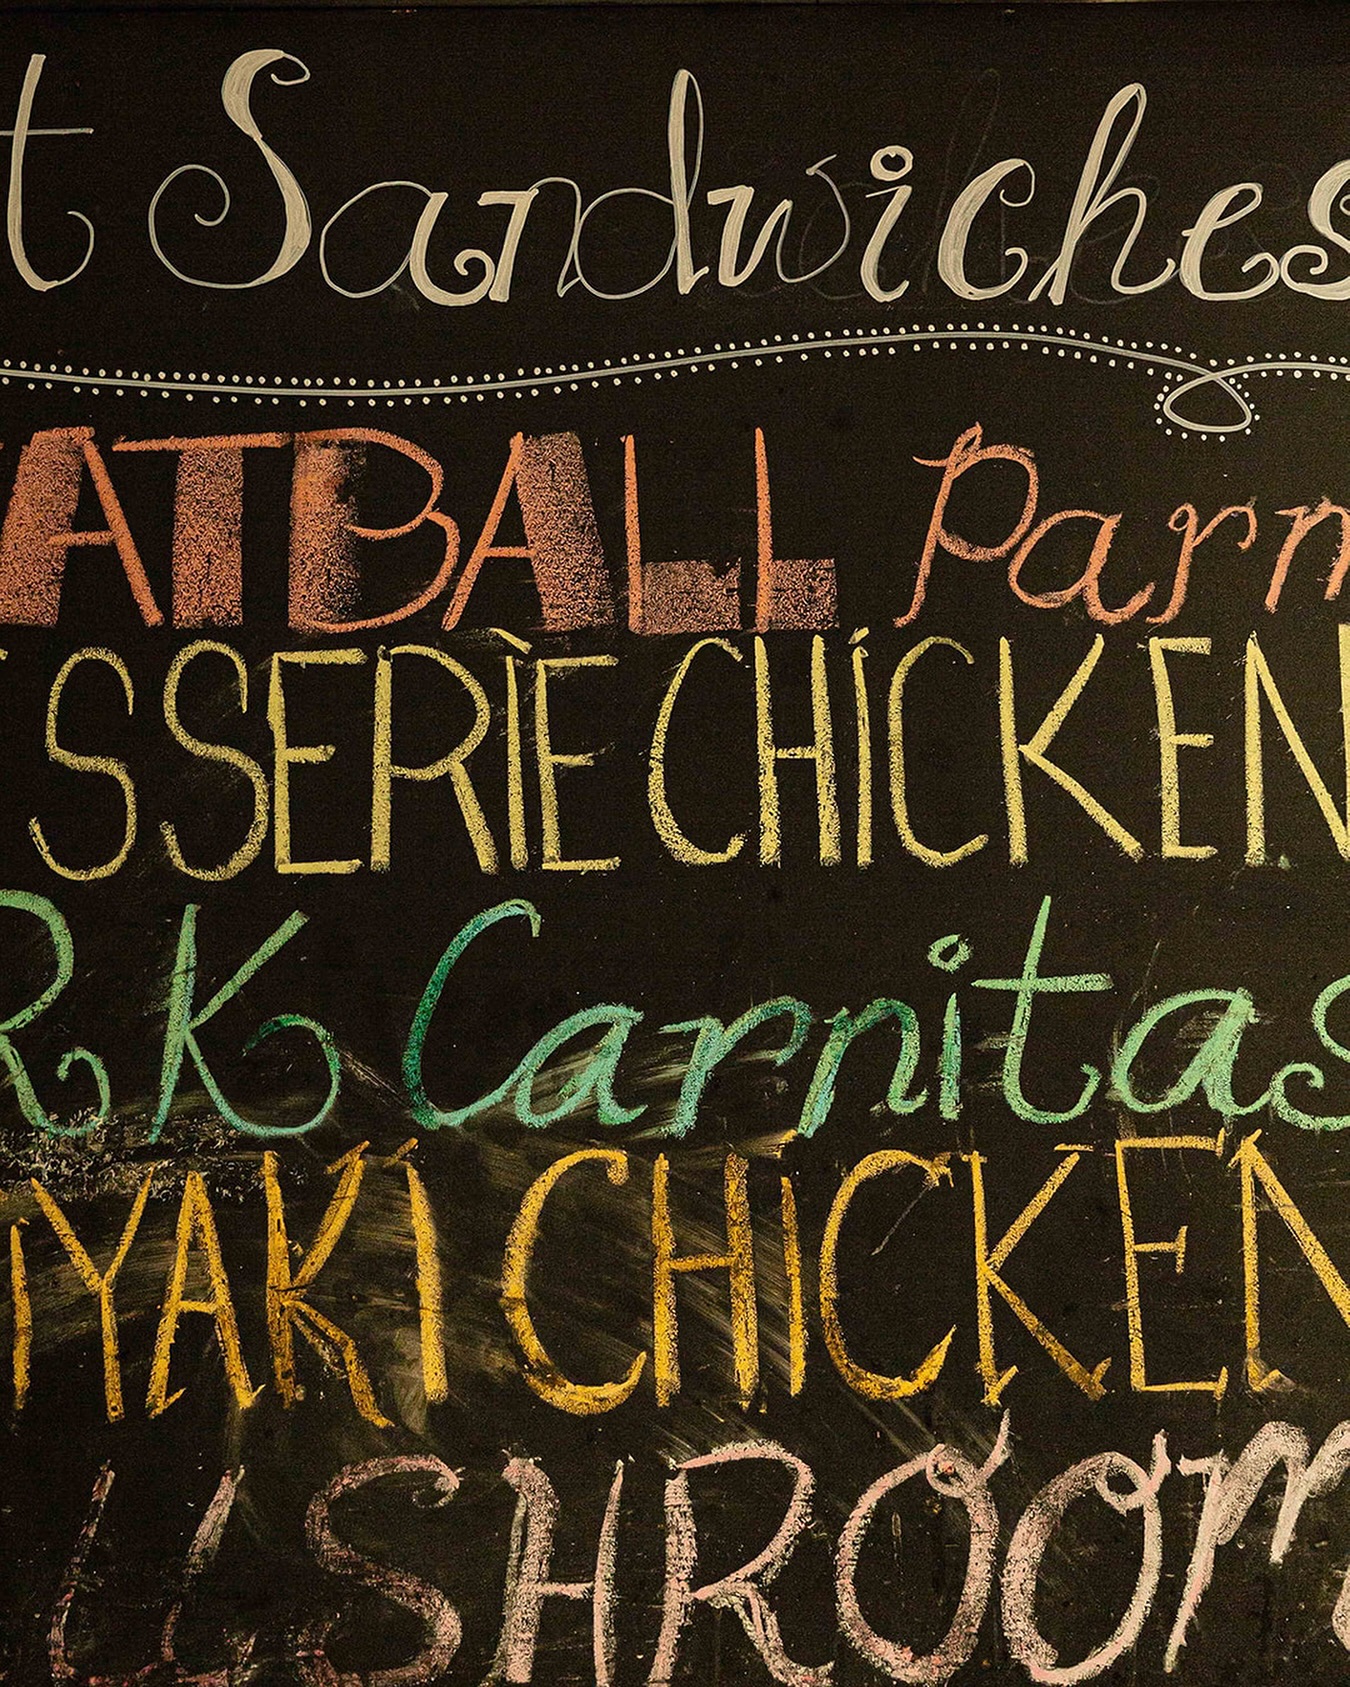 t Sandwiches
EATBALL Parm
ISSERIE CHICKEN
RK Carnitas
IYAKI CHICKEN
USHROOM